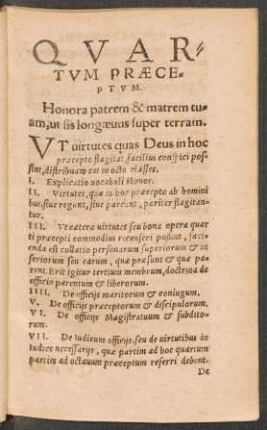 QVAR-
TVM PRÆCE-
PTVM.
Honora patrem & matrem tu-
am, ut sis longæuus super terram.
VT uirtutes quas Deus in hoc
præcepto flagitat, facilius conspici pos-
sint, distribuam eas in octo classes.
I. Explicatio uocabuli Honor.
II. Virtutes, quæ in hoc præcepto ab homini
bus, siue regant, siue pareant, pariter flagitan-
tur.
III. Vt cætera uirtutes seu bona opera quar
ti præcepti commodius recenseri possint, faci-
enda est collatio personarum superiorum & in
feriorum seu earum, quæ præsunt & quæ pa-
rent. Erit igitur tertium membrum, doctrina de
officio parentum & liberorum.
IIII. De officijs maritorum & coniugum.
V. De officijs præceptorum & discipulorum.
VI. De officijs Magistratuum & subdito-
rum.
VII. De iudicum officijs, seu de uirtutibus in
iudice necessarijs, quæ partim ad hoc quartum
partim ad octauum præceptum referri debent.
De